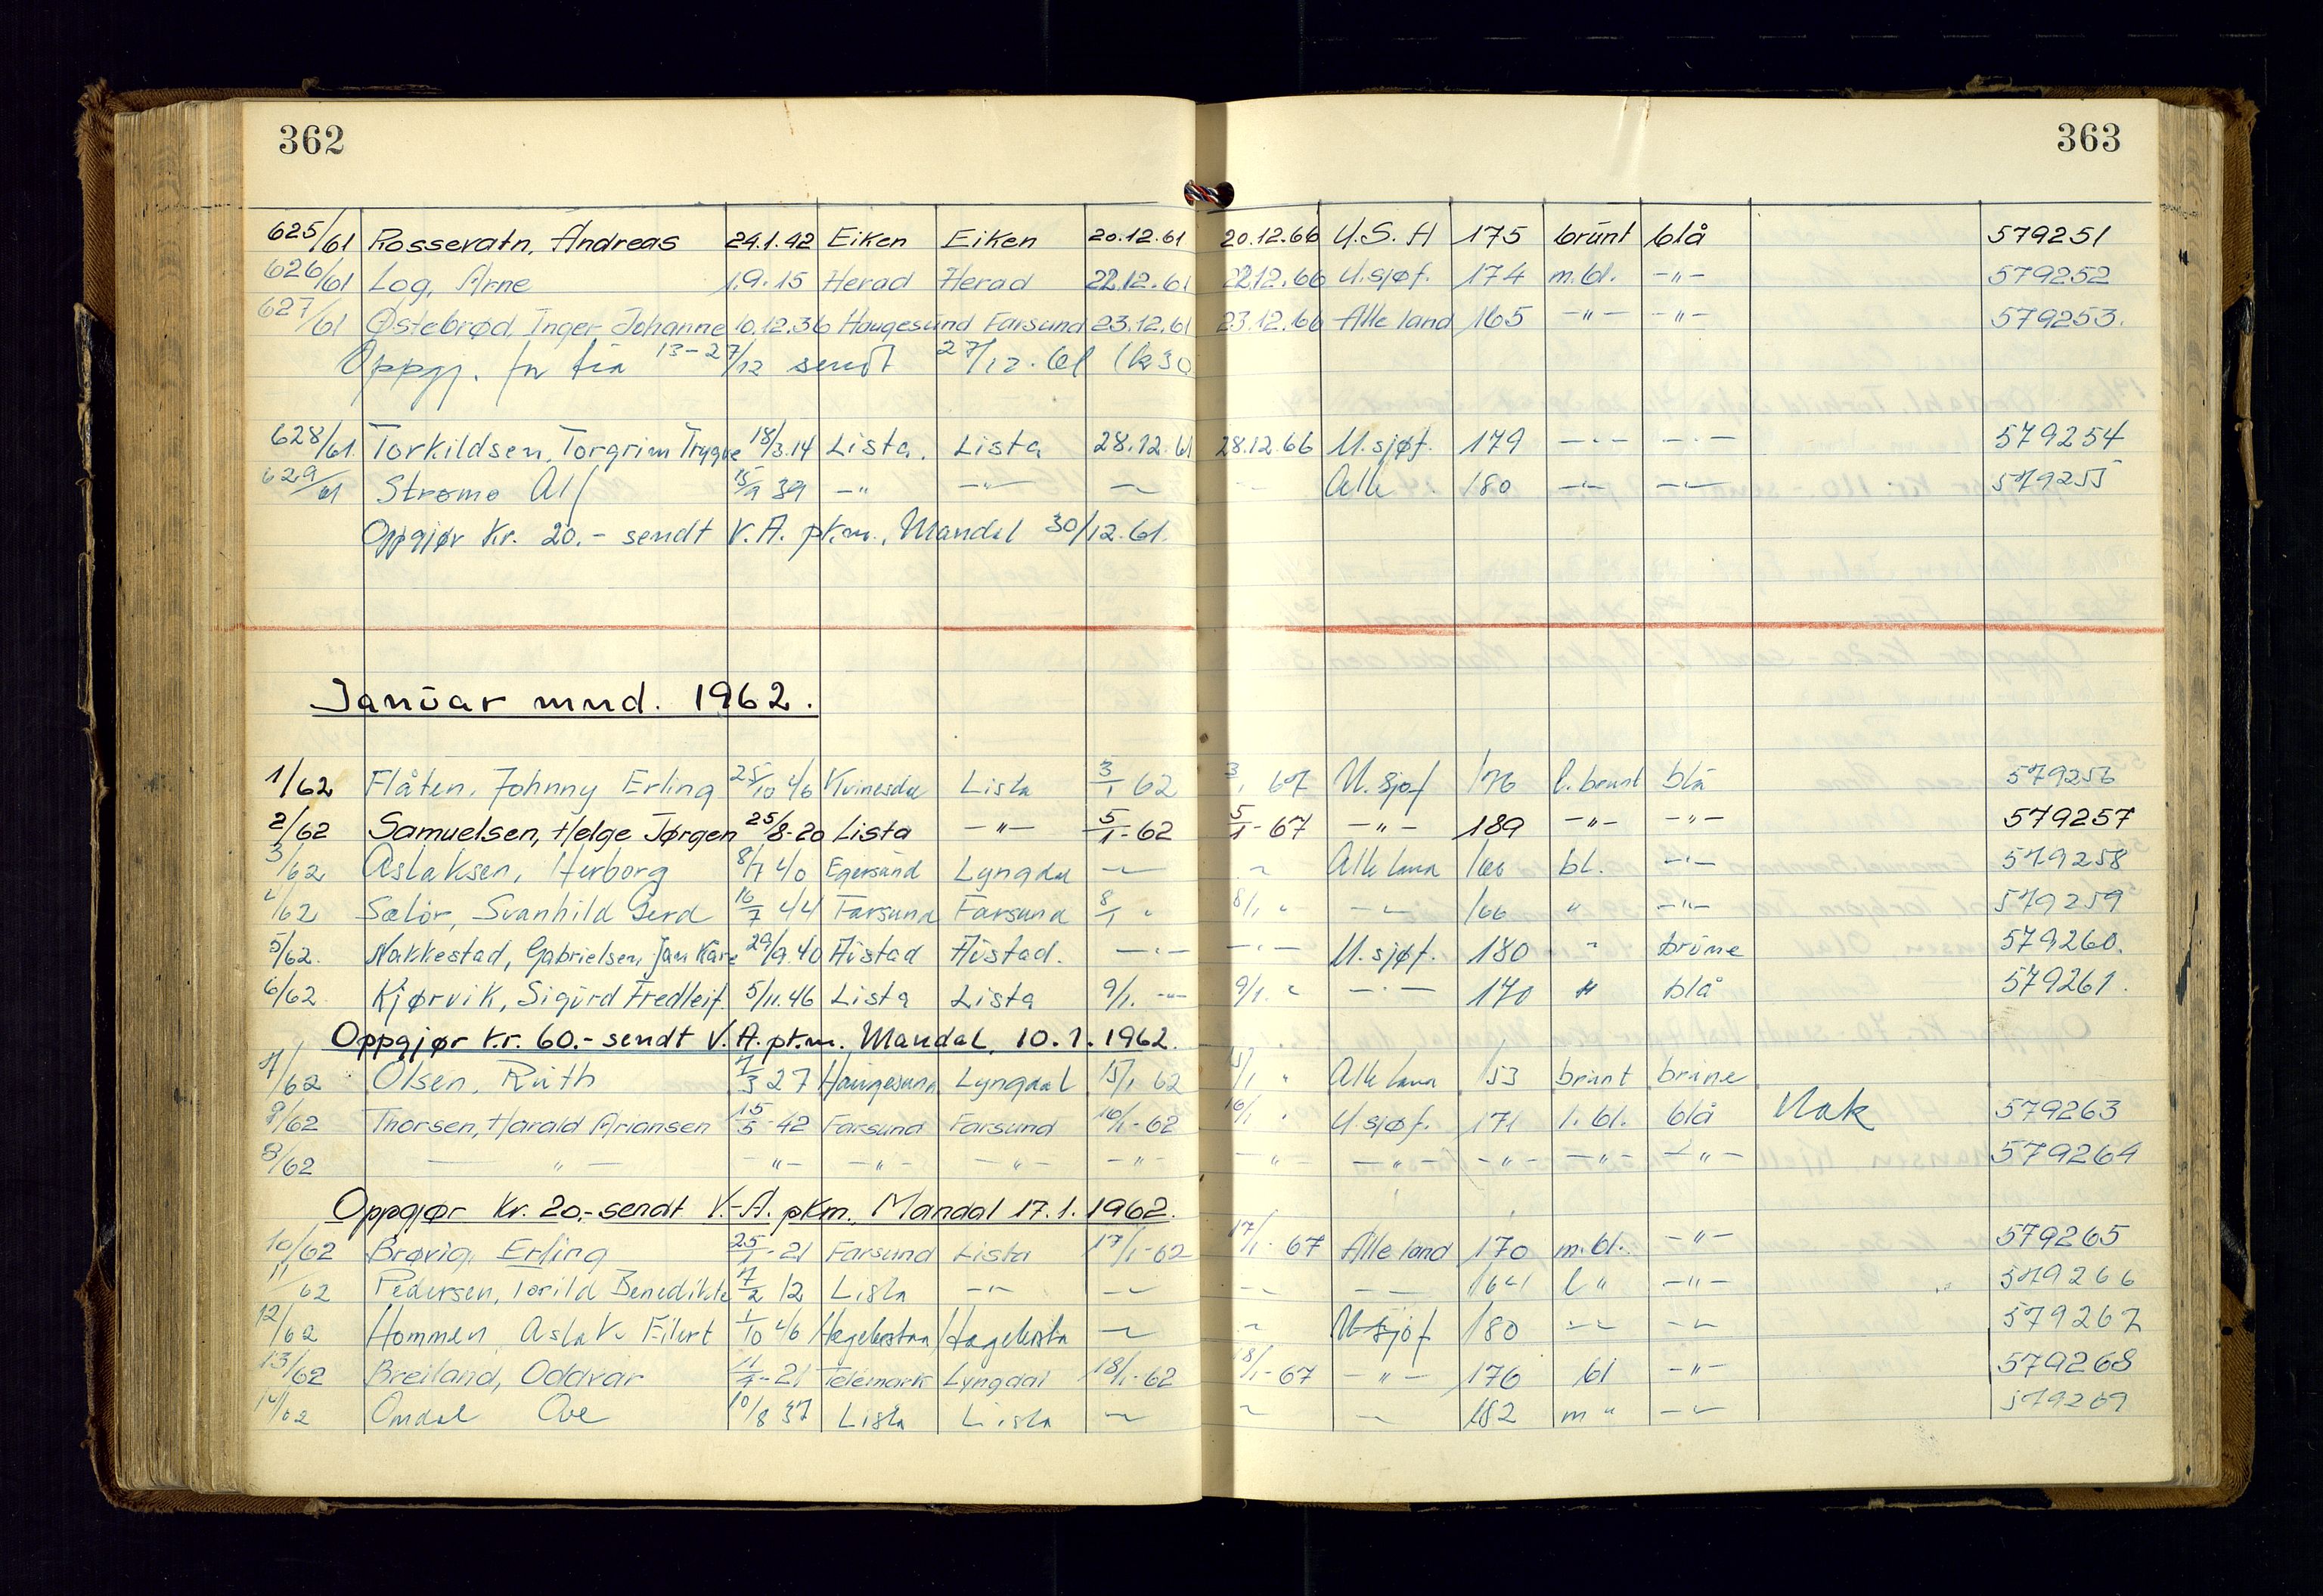 362
363
625/61 Rossevatn, Andreas 24.1.42 Eiken Eiken 20.12.61 20.12.66 U.S.A 175 brunt blå 579251
626/61 Log, Arne 1.9.15 Herad Herad 22.12.61 22.12.66 U.sjøf. 174 m.bl. -"- 579252
627/61 Østebrød, Inger Johanne 10.12.36 Haugesund Farsund 23.12.61 23.12.66 Alle land 165 -"- -"- 579253.
Oppgj. for tia 13-27/12 sendt 27/12.61 (kr 30
628/61. Torkildsen, Torgrim Trygve 18/3.14 Lista. Lista 28.12.61 28.12.66 U.sjøf. 179 -"- -"- 579254
629/61 Strømo Alf 15/9 39 -"- -"- - Alle 180 -"- -"- 579255
Oppgjør kr. 20.- sendt V.A. pk.m., Mandal 30/12.61.
Januar mnd. 1962.
1/62 Flåten, Johnny Erling 25/10 46 Kvinesdal Lista 3/1 62 3/1 67 U.sjøf 176 l.brunt blå 579256
2/62 Samuelsen, Helge Jørgen 25/8-20 Lista -"- 5/1-62 5/1-67 -"- 189 -"- -"- 579257
3/62 Aslaksen, Herborg 8/7 40 Egersund Lyngdal - - Alle land 160 bl. -"- 579258
4/62 Sælør, Svanhild Gerd 16/7 44 Farsund Farsund 8/1 " 8/1 " -"- 166 " -"- 579259
5/62. Nakkestad, Gabrielsen, Jan Kåre 29/9.40 Austad Austad. -"- -"- U.sjøf. 180 " brune 579260.
6/62. Kjørvik, Sigurd Fredleif. 5/11.46 Lista Lista 9/1. -"- 9/1. " -"- 170 " blå 579261.
Oppgjør kr. 60.- sendt V.A. pk.m. Mandal. 10.1.1962.
7/62 Olsen, Ruth 7/3 27 Haugesund Lyngdal 15/1 62 15/1 " Alle land 153 brunt brune
8/62 Thorsen, Harald Ariansen 15/5-42 Farsund Farsund 16/1-62 16/1 " U.sjøf. 171 l.bl. blå Mak 579263
8/62 -"- -"- -"- -"- -"- -"- -"- -"- -"- -"- 579264
Oppgjør kr. 20.- sendt V.-A. pkm., Mandal 17.1.1962.
10/62 Brøvig, Erling 25/1-21 Farsund Lista 17/1-62 17/1-67 Alle land 170 m.bl. -"- 579265
11/62 Pedersen, Torild Benedikte 7/2 12 Lista -"- - - - 164 l " -"- 579266
12/62 Hommen, Aslak Eilert 1/10 46 Hægebostad Hægebosta - - U sjøf 180 -"- -"- 579267
13/62 Breiland, Oddvar 11/7-21 Telemark Lyngdal 18/1-62 18/1-67 -"- 176 bl -"- 579268
14/62 Omdal Ove 10/8 37 Lista Lista - - - 182 m " -"- 579269